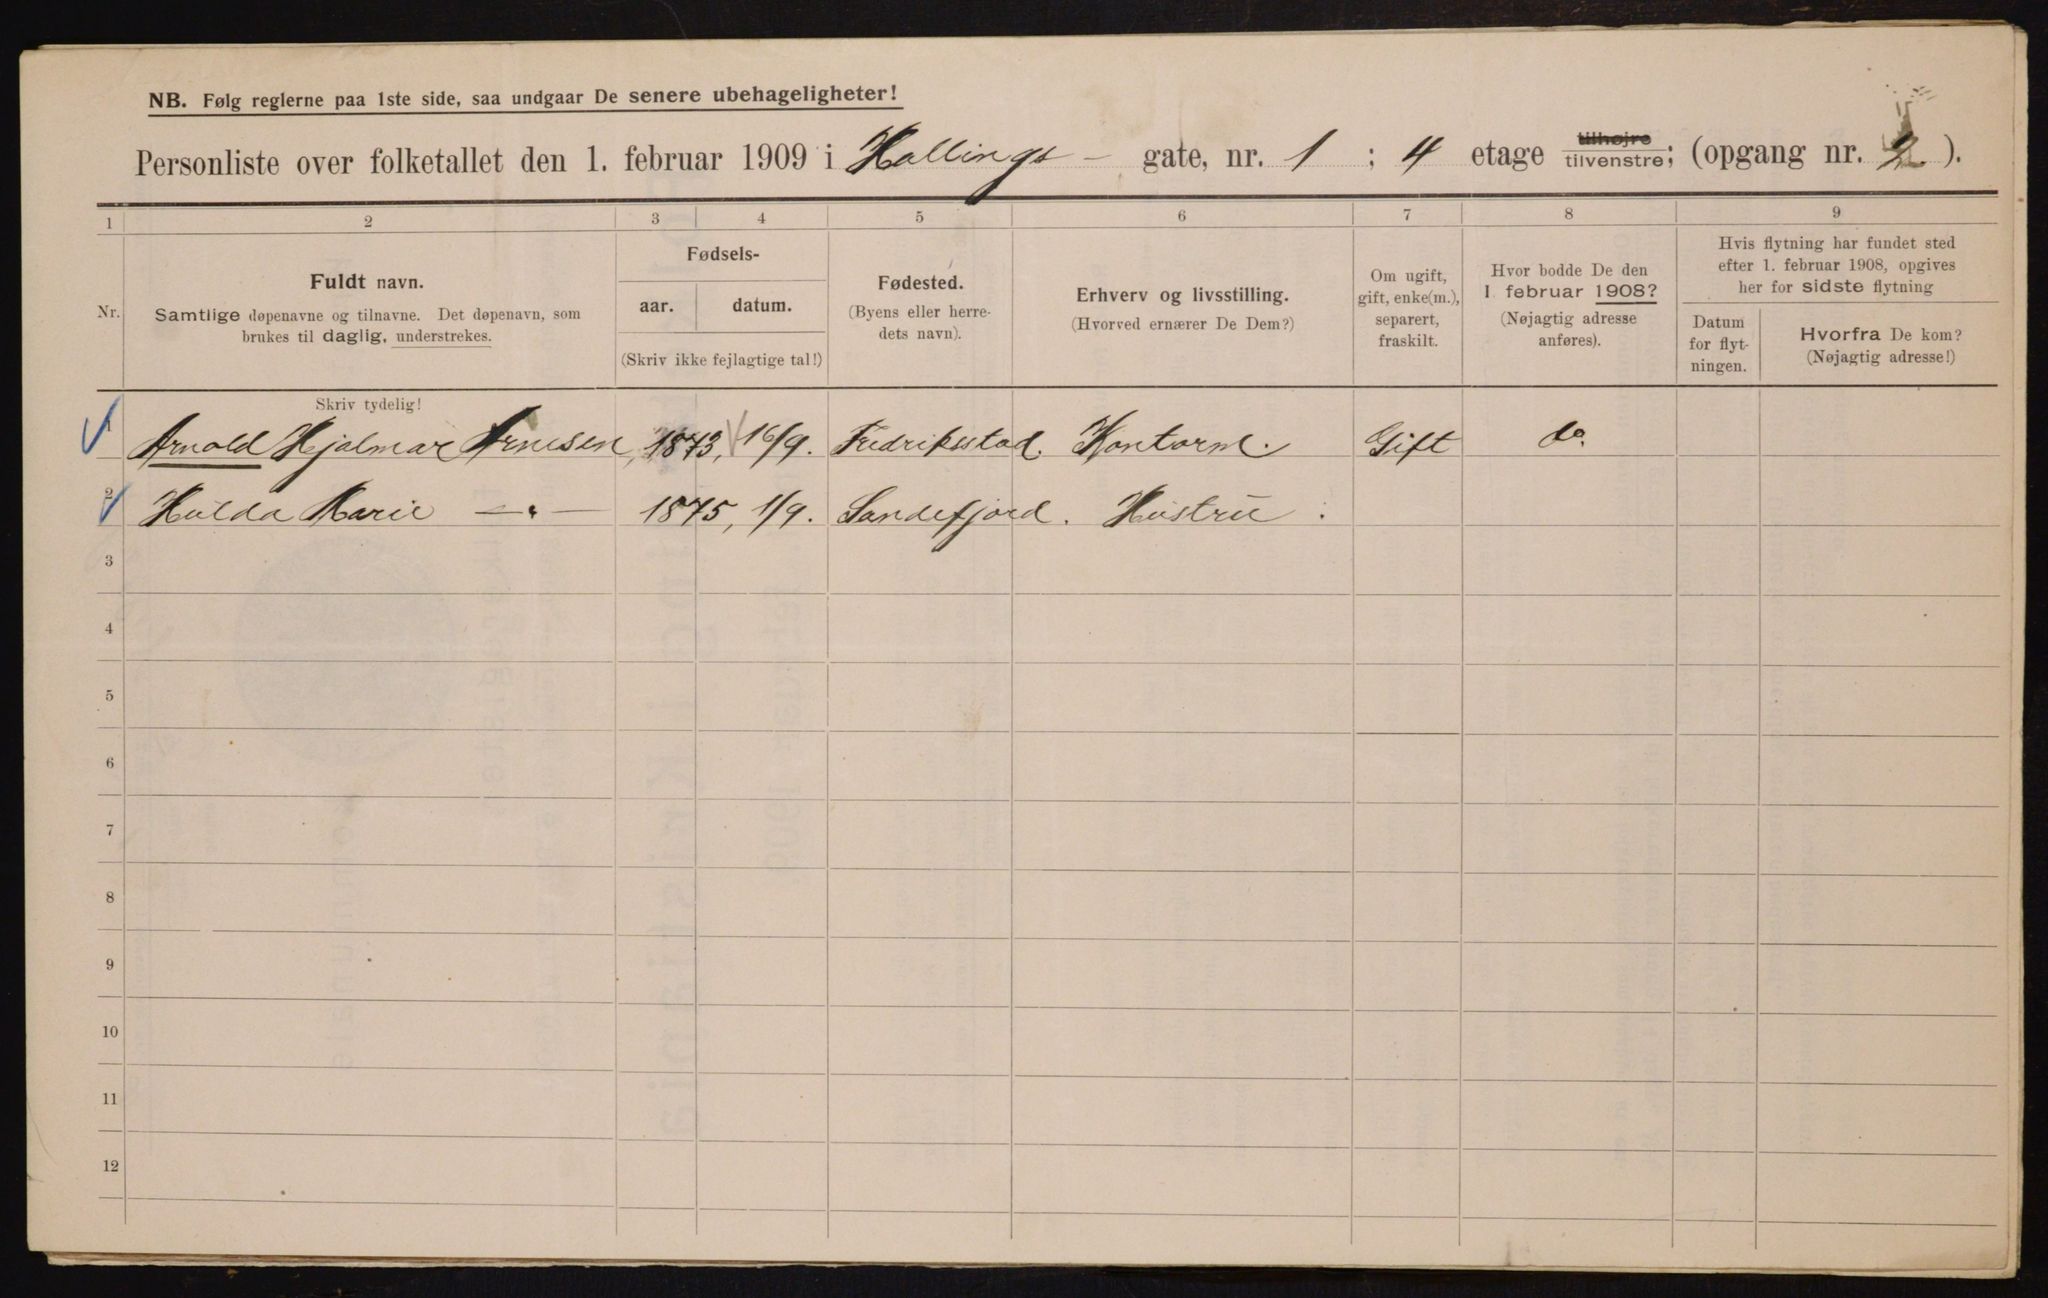 NB. Følg reglerne paa 1ste side, saa undgaar De senere ubehageligheter!
Personliste over folketallet den 1. februar 1909 i Hallings - gate, nr. 1 ; 4 etage tilhøjre tilvenstre; (opgang nr. 2).
1 2 3 4 5 6 7 8 9
Nr.
Fuldt navn.
Samtlige døpenavne og tilnavne. Det døpenavn, som
brukes til daglig, understrekes.
Fødsels-
aar. datum.
(Skriv ikke fejlagtige tal!)
Fødested.
(Byens eller herre-
dets navn).
Erhverv og livsstilling.
(Hvorved ernærer De Dem?)
Om ugift,
gift, enke(m.),
separert,
fraskilt.
Hvor bodde De den
1 februar 1908?
(Nøjagtig adresse
anføres).
Hvis flytning har fundet sted
efter 1. februar 1908, opgives
her for sidste flytning
Datum
for flyt-
ningen.
Hvorfra De kom?
(Nøjagtig adresse!)
Skriv tydelig!
1 Arnold Hjalmar Arnesen, 1873, 16/9. Fredriksstad. Kontorm. Gift do.
2 Hulda Marie —〃— 1875, 1/9. Sandefjord. Hustru.
3
4
5
6
7
8
9
10
11
12